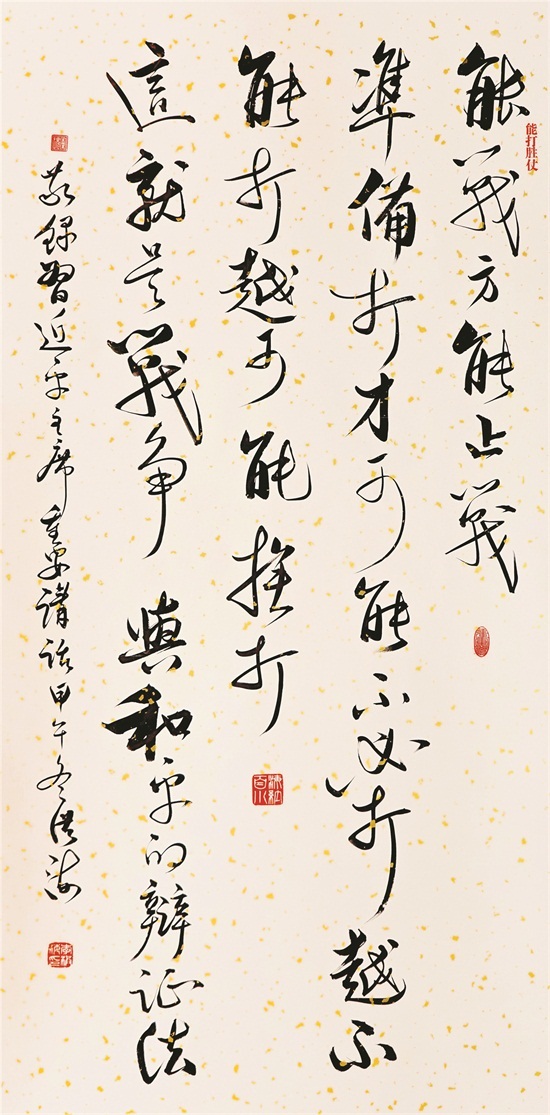 能打胜仗
能戰方能止戰
準備打才可能不必打越不
能打越可能挨打
這就是戰争與和平的辯证法
敬録習近平主席重要講話甲午冬洪海
海納百川